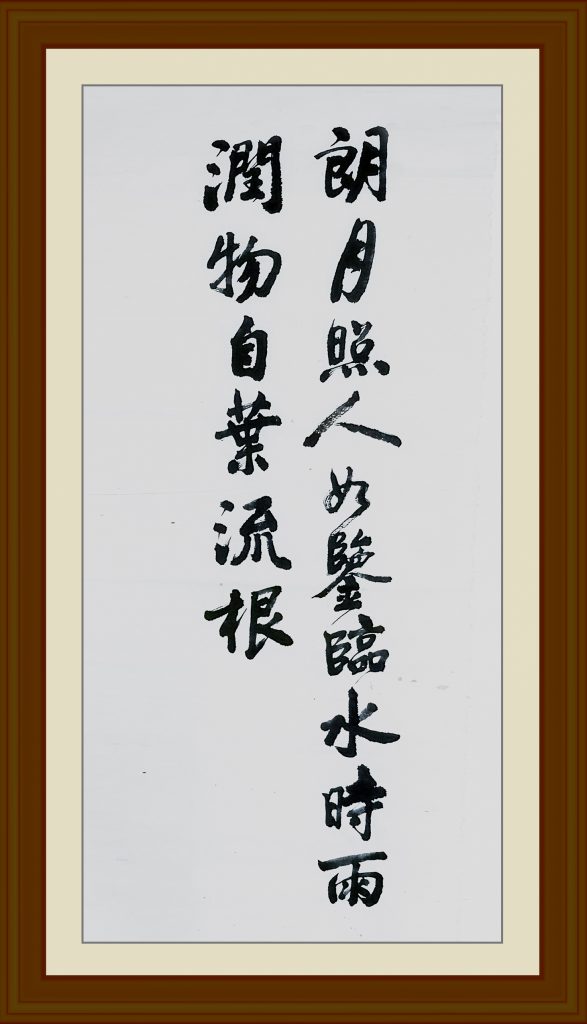 朗月照人如鑒臨水時雨
潤物自葉流根